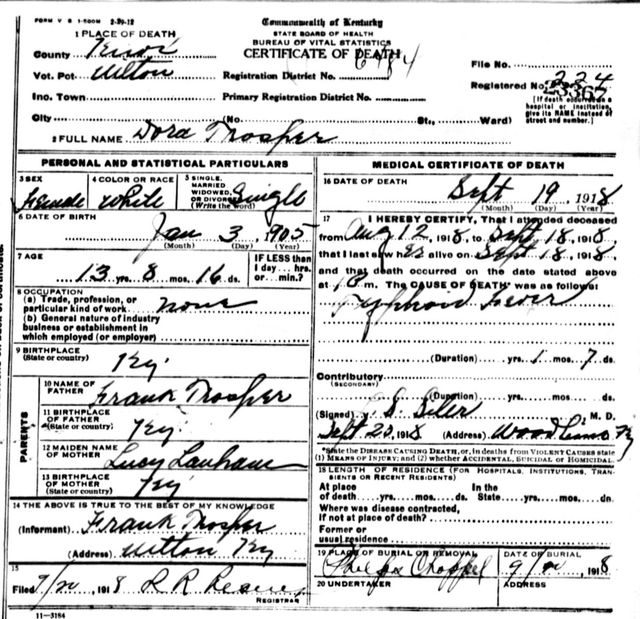 FORM V S 1-500M 2-20-12
Commonwealth of Kentucky
STATE BOARD OF HEALTH
BUREAU OF VITAL STATISTICS
CERTIFICATE OF DEATH
1 PLACE OF DEATH
County
Vot. Pct. Wilton
Registration District No.
File No.
Inc. Town
Primary Registration District No.
Registered No. 224
23367
City (No. St., Ward)
[If death occurred in a hospital or institution, give its NAME instead of street and number.]
2 FULL NAME Dora Trosper
PERSONAL AND STATISTICAL PARTICULARS
3 SEX Female
4 COLOR OR RACE White
5 SINGLE, MARRIED, WIDOWED, OR DIVORCED (Write the word) Single
6 DATE OF BIRTH
Jan 3, 1905
(Month) (Day) (Year)
7 AGE
13 yrs. 8 mos. 16 ds.
IF LESS than 1 day... hrs. or... min.?
8 OCCUPATION
(a) Trade, profession, or particular kind of work none
(b) General nature of industry business or establishment in which employed (or employer)
9 BIRTHPLACE
(State or country) Ky.
PARENTS
10 NAME OF FATHER Frank Trosper
11 BIRTHPLACE OF FATHER
(State or country) Ky.
12 MAIDEN NAME OF MOTHER Lucy Lanham
13 BIRTHPLACE OF MOTHER
(State or country) Ky
14 THE ABOVE IS TRUE TO THE BEST OF MY KNOWLEDGE
(Informant) Frank Trosper
(Address) Wilton Ky
15
Filed 9/20, 1918 R R
REGISTRAR
11-3184
MEDICAL CERTIFICATE OF DEATH
16 DATE OF DEATH
Sept 19 1918
(Month) (Day) (Year)
17 I HEREBY CERTIFY, That I attended deceased
from Aug 12, 1918, to Sept 18, 1918
that I last saw her alive on Sept 18, 1918
and that death occurred on the date stated above
at m. The CAUSE OF DEATH* was as follows:
Typhoid Fever
(Duration) yrs. 1 mos. 7 ds.
Contributory
(SECONDARY)
(Duration) yrs. mos. ds.
(Signed) Siler M. D.
Sept 20, 1918 (Address) Ky
*State the DISEASE CAUSING DEATH, or, in deaths from VIOLENT CAUSES state (1) MEANS OF INJURY; and (2) whether ACCIDENTAL, SUICIDAL or HOMICIDAL.
18 LENGTH OF RESIDENCE (FOR HOSPITALS, INSTITUTIONS, TRANSIENTS OR RECENT RESIDENTS)
At place of death yrs. mos. ds. In the State yrs. mos. ds.
Where was disease contracted, If not at place of death?
Former or usual residence
19 PLACE OF BURIAL OR REMOVAL
Phelps Chappel
DATE OF BURIAL
9/20 1918
20 UNDERTAKER
ADDRESS